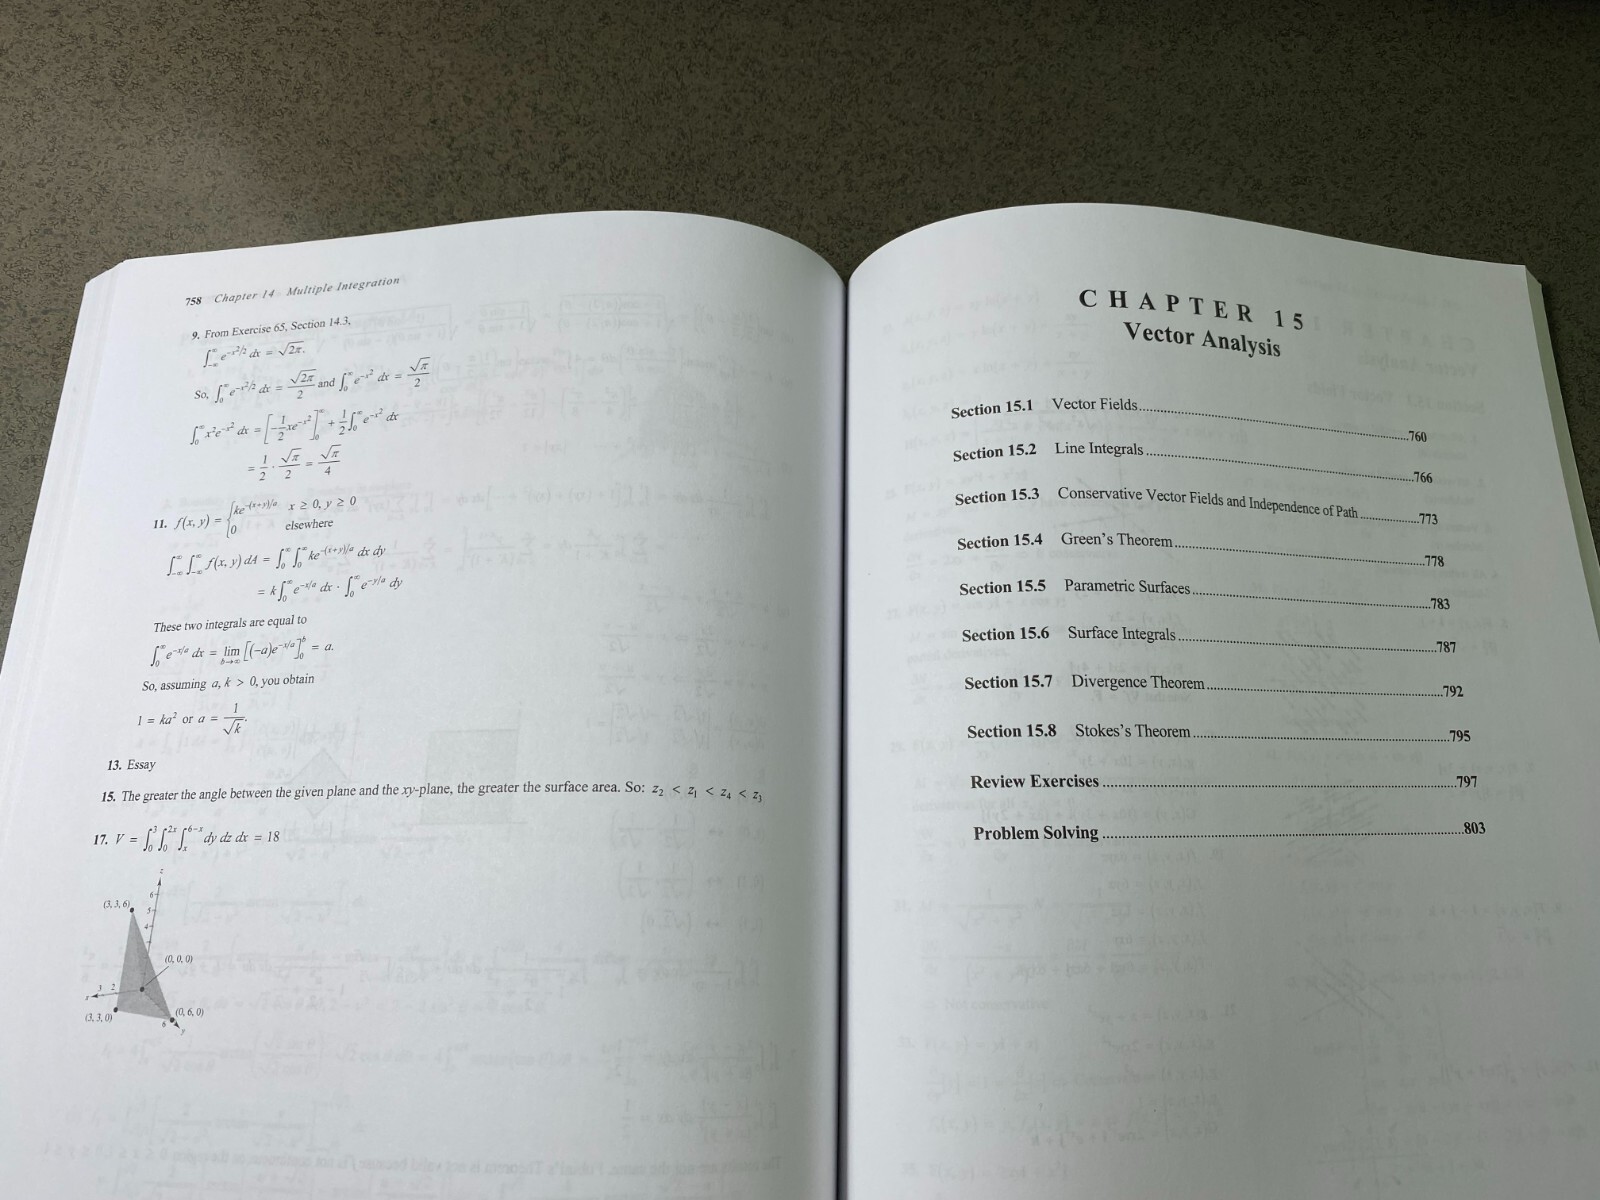 758 Chapter 14 Multiple Integration
9. From Exercise 65, Section 14.3,
∫_{-∞}^{∞} e^{-x²/2} dx = √2π.
So, ∫_0^∞ e^{-x²/2} dx = √2π/2 and ∫_0^∞ e^{-x²} dx = √π/2
∫_0^∞ x²e^{-x²} dx = [-1/2 xe^{-x²}]_0^∞ + 1/2 ∫_0^∞ e^{-x²} dx
= 1/2 · √π/2 = √π/4
11. f(x, y) = { ke^{-(x+y)/a} x ≥ 0, y ≥ 0
0 elsewhere
∫_{-∞}^∞ ∫_{-∞}^∞ f(x, y) dA = ∫_0^∞ ∫_0^∞ ke^{-(x+y)/a} dx dy
= k ∫_0^∞ e^{-x/a} dx · ∫_0^∞ e^{-y/a} dy
These two integrals are equal to
∫_0^∞ e^{-x/a} dx = lim_{b→∞} [(-a)e^{-x/a}]_0^b = a.
So, assuming a, k > 0, you obtain
1 = ka² or a = 1/√k.
13. Essay
15. The greater the angle between the given plane and the xy-plane, the greater the surface area. So: z₂ < z₁ < z₄ < z₃
17. V = ∫_0^3 ∫_0^{2x} ∫_x^{6-x} dy dz dx = 18
z
6
(3, 3, 6)
5
4
(0, 0, 0)
3 2
x
(3, 3, 0)
(0, 6, 0)
6
y
CHAPTER 15
Vector Analysis
Section 15.1 Vector Fields 760
Section 15.2 Line Integrals 766
Section 15.3 Conservative Vector Fields and Independence of Path 773
Section 15.4 Green's Theorem 778
Section 15.5 Parametric Surfaces 783
Section 15.6 Surface Integrals 787
Section 15.7 Divergence Theorem 792
Section 15.8 Stokes's Theorem 795
Review Exercises 797
Problem Solving 803